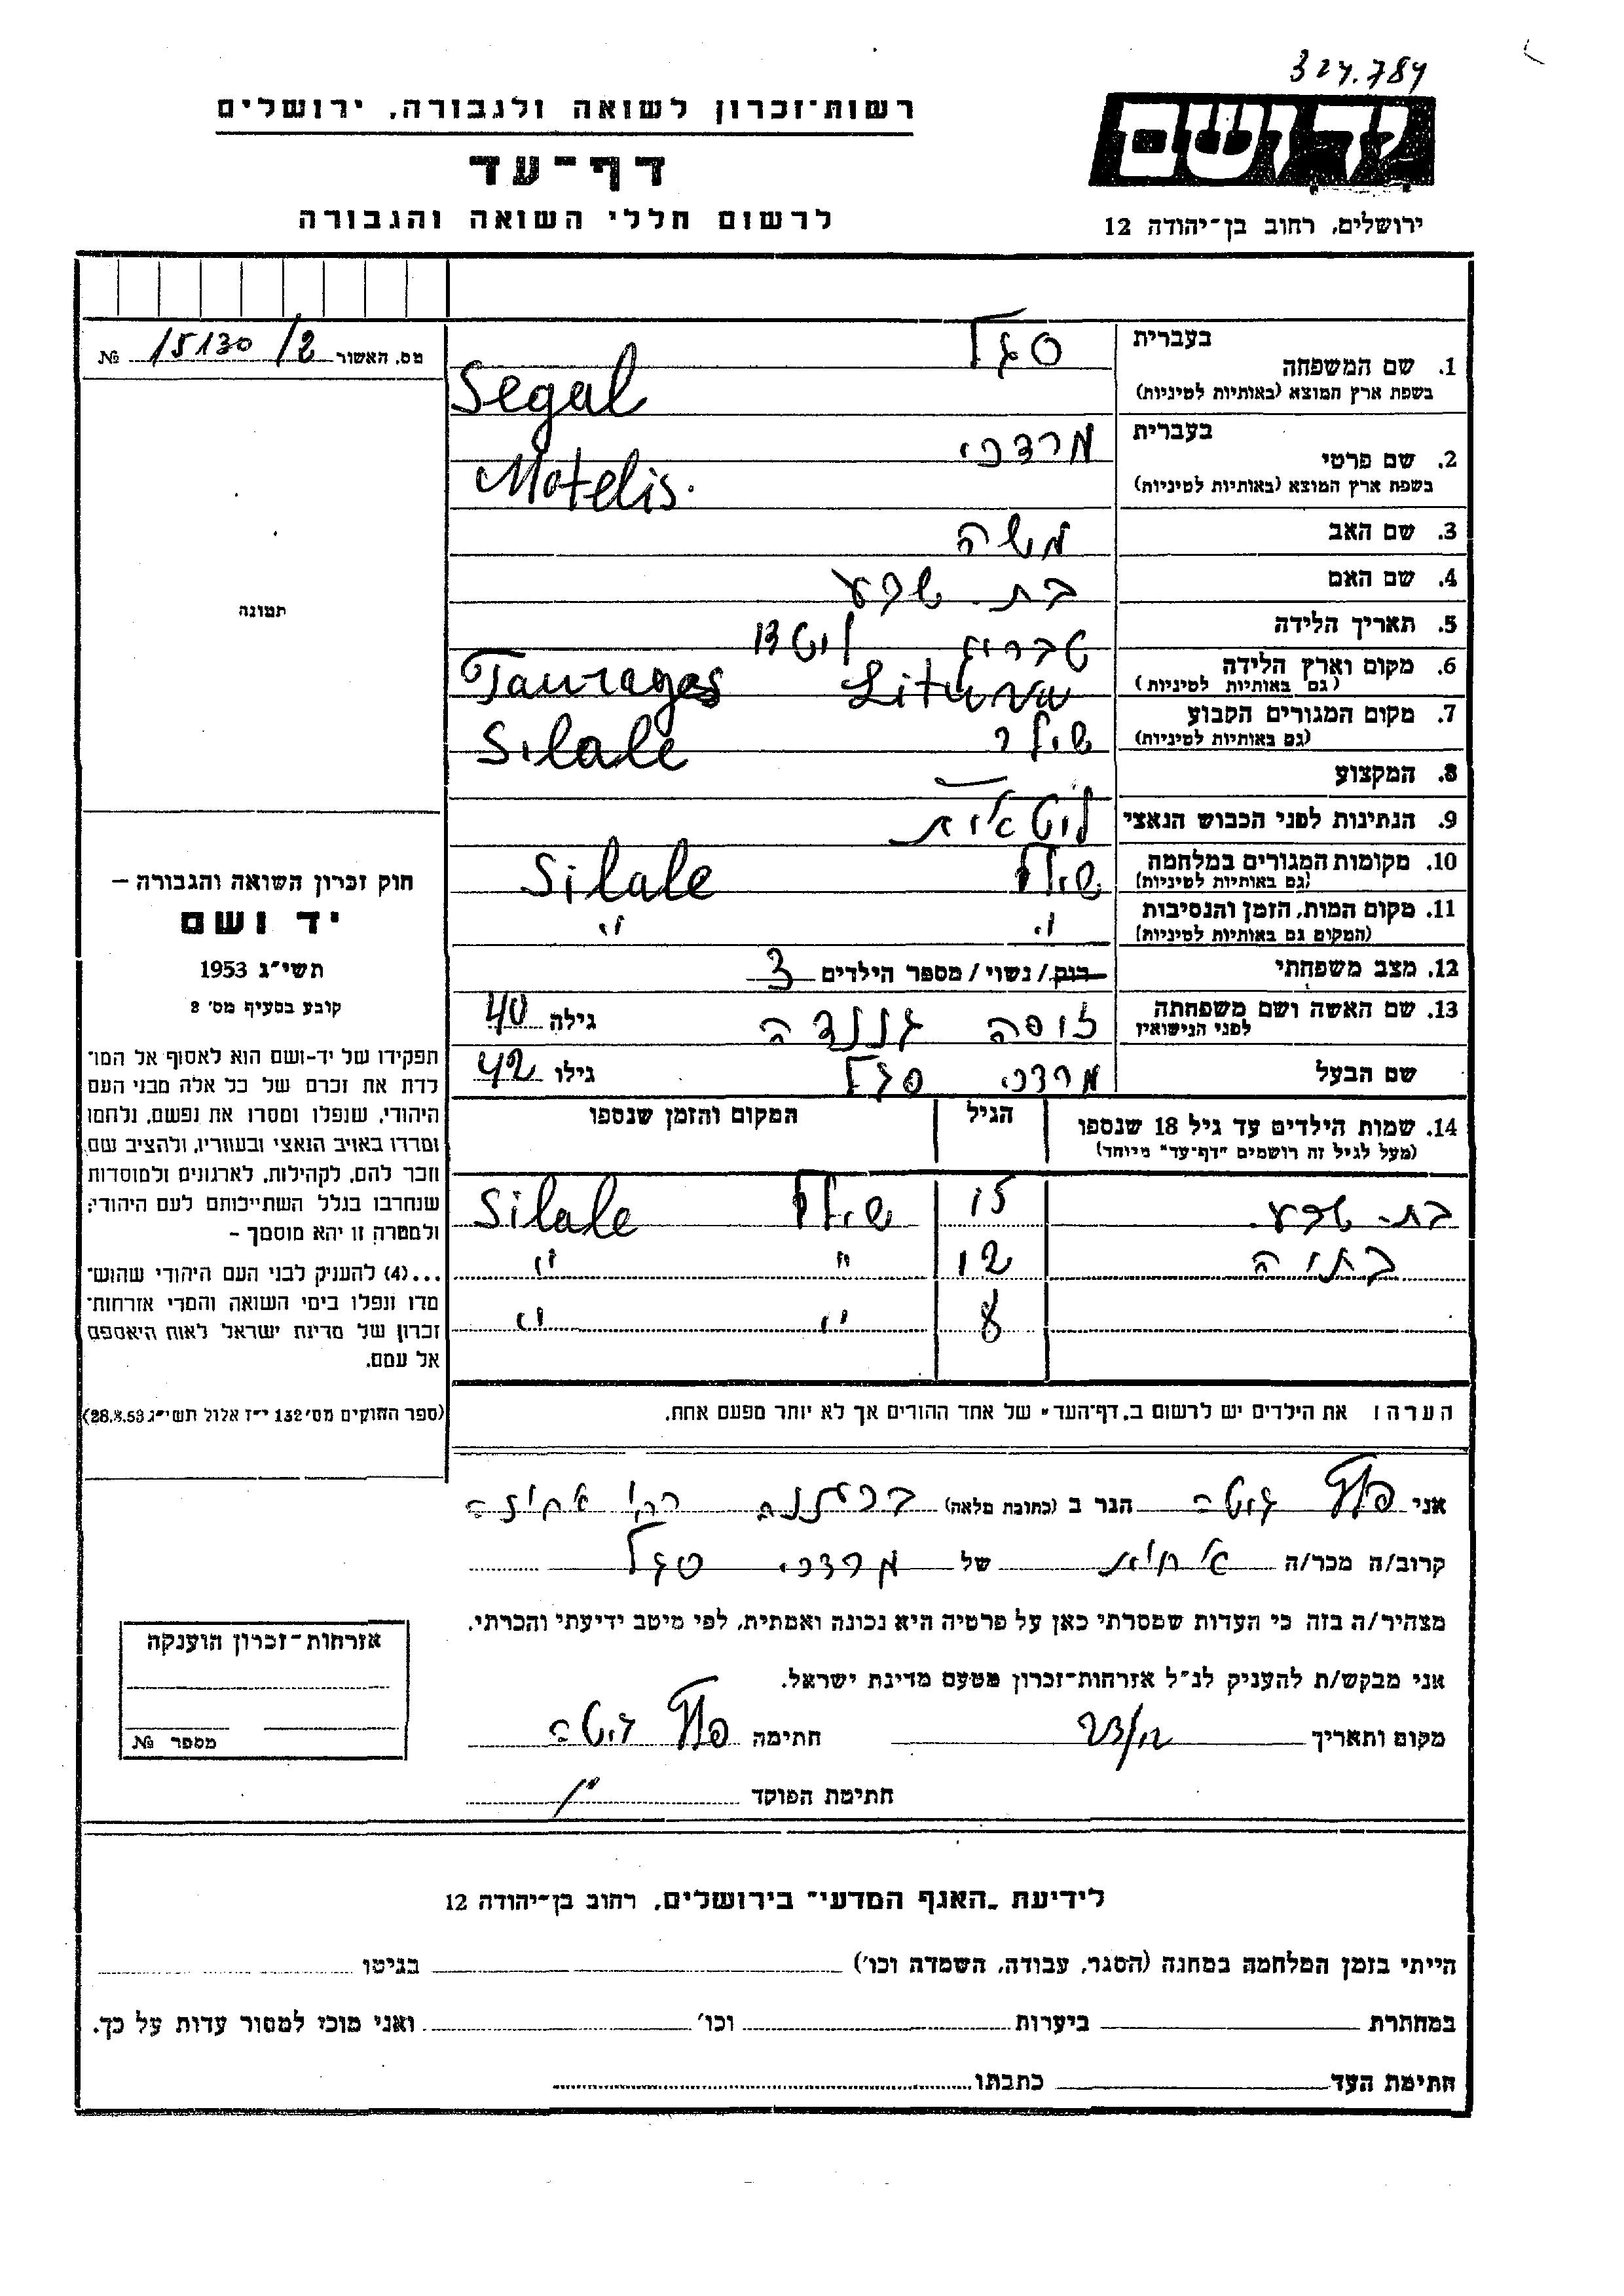 324.784
רשות־זכרון לשואה ולגבורה, ירושלים
ידושם
דף־עד
לרשום חללי השואה והגבורה
ירושלים, רחוב בן־יהודה 12
מס. האשור 15130/2 №
בעברית
סגל
1. שם המשפחה
בשפת ארץ המוצא (באותיות לטיניות)
Segal
בעברית
מרדכי
2. שם פרטי
בשפת ארץ המוצא (באותיות לטיניות)
Motelis.
3. שם האב
משה
4. שם האם
בת-שבע
5. תאריך הלידה
6. מקום וארץ הלידה
(גם באותיות לטיניות)
טבריג ליטא
Taurages Lituva
7. מקום המגורים הקבוע
(גם באותיות לטיניות)
Silale
8. המקצוע
9. הנתינות לפני הכבוש הנאצי
ליטאית
10. מקומות המגורים במלחמה
(גם באותיות לטיניות)
שילל Silale
11. מקום המות, הזמן והנסיבות
(המקום גם באותיות לטיניות)
" "
12. מצב משפחתי
רווק / נשוי / מספר הילדים 3
13. שם האשה ושם משפחתה
לפני הנישואין
גילה 40
שם הבעל
מרדכי סגל גילו 42
14. שמות הילדים עד גיל 18 שנספו
(מעל לגיל זה רושמים "דף־עד" מיוחד)
הגיל
המקום והזמן שנספו
בת-שבע 15 שילל Silale
בתיה 12 " "
8 " "
תמונה
חוק זכרון השואה והגבורה –
יד ושם
תשי״ג 1953
קובע בסעיף מס׳ 2
תפקידו של יד-ושם הוא לאסוף אל המו־
לדת את זכרם של כל אלה מבני העם
היהודי, שנפלו ומסרו את נפשם, נלחמו
ומרדו באויב הנאצי ובעוזריו, ולהציב שם
וזכר להם, לקהילות, לארגונים ולמוסדות
שנחרבו בגלל השתייכותם לעם היהודי;
ולמטרה זו יהא מוסמך –
...(4) להעניק לבני העם היהודי שהוש־
מדו ונפלו בימי השואה והמרי אזרחות־
זכרון של מדינת ישראל לאות היאספם
אל עמם.
(ספר החוקים מס׳ 132 י״ז אלול תשי״ג 28.8.53)
הערה: את הילדים יש לרשום ב„דף־העד״ של אחד ההורים אך לא יותר מפעם אחת.
אני הגר ב (כתובת מלאה)
קרוב/ה מכר/ה של מרדכי סגל
מצהיר/ה בזה כי העדות שמסרתי כאן על פרטיה היא נכונה ואמתית, לפי מיטב ידיעתי והכרתי.
אני מבקש/ת להעניק לנ״ל אזרחות־זכרון מטעם מדינת ישראל.
מקום ותאריך חתימה
חתימת הפוקד
אזרחות־זכרון הוענקה
מספר №
לידיעת „האגף המדעי״ בירושלים, רחוב בן־יהודה 12
הייתי בזמן המלחמה במחנה (הסגר, עבודה, השמדה וכו׳) בגיטו
במחתרת ביערות וכו׳ ואני מוכן למסור עדות על כך.
חתימת העד כתבתו